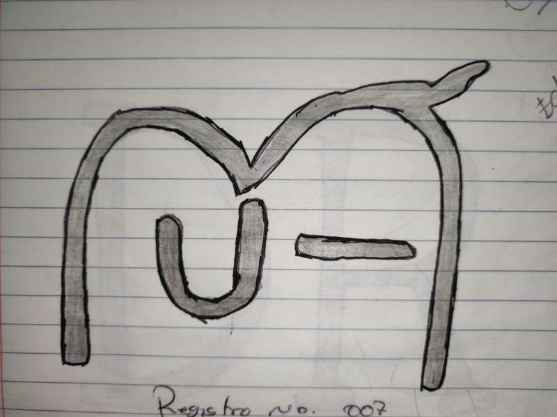 Registro No. 007